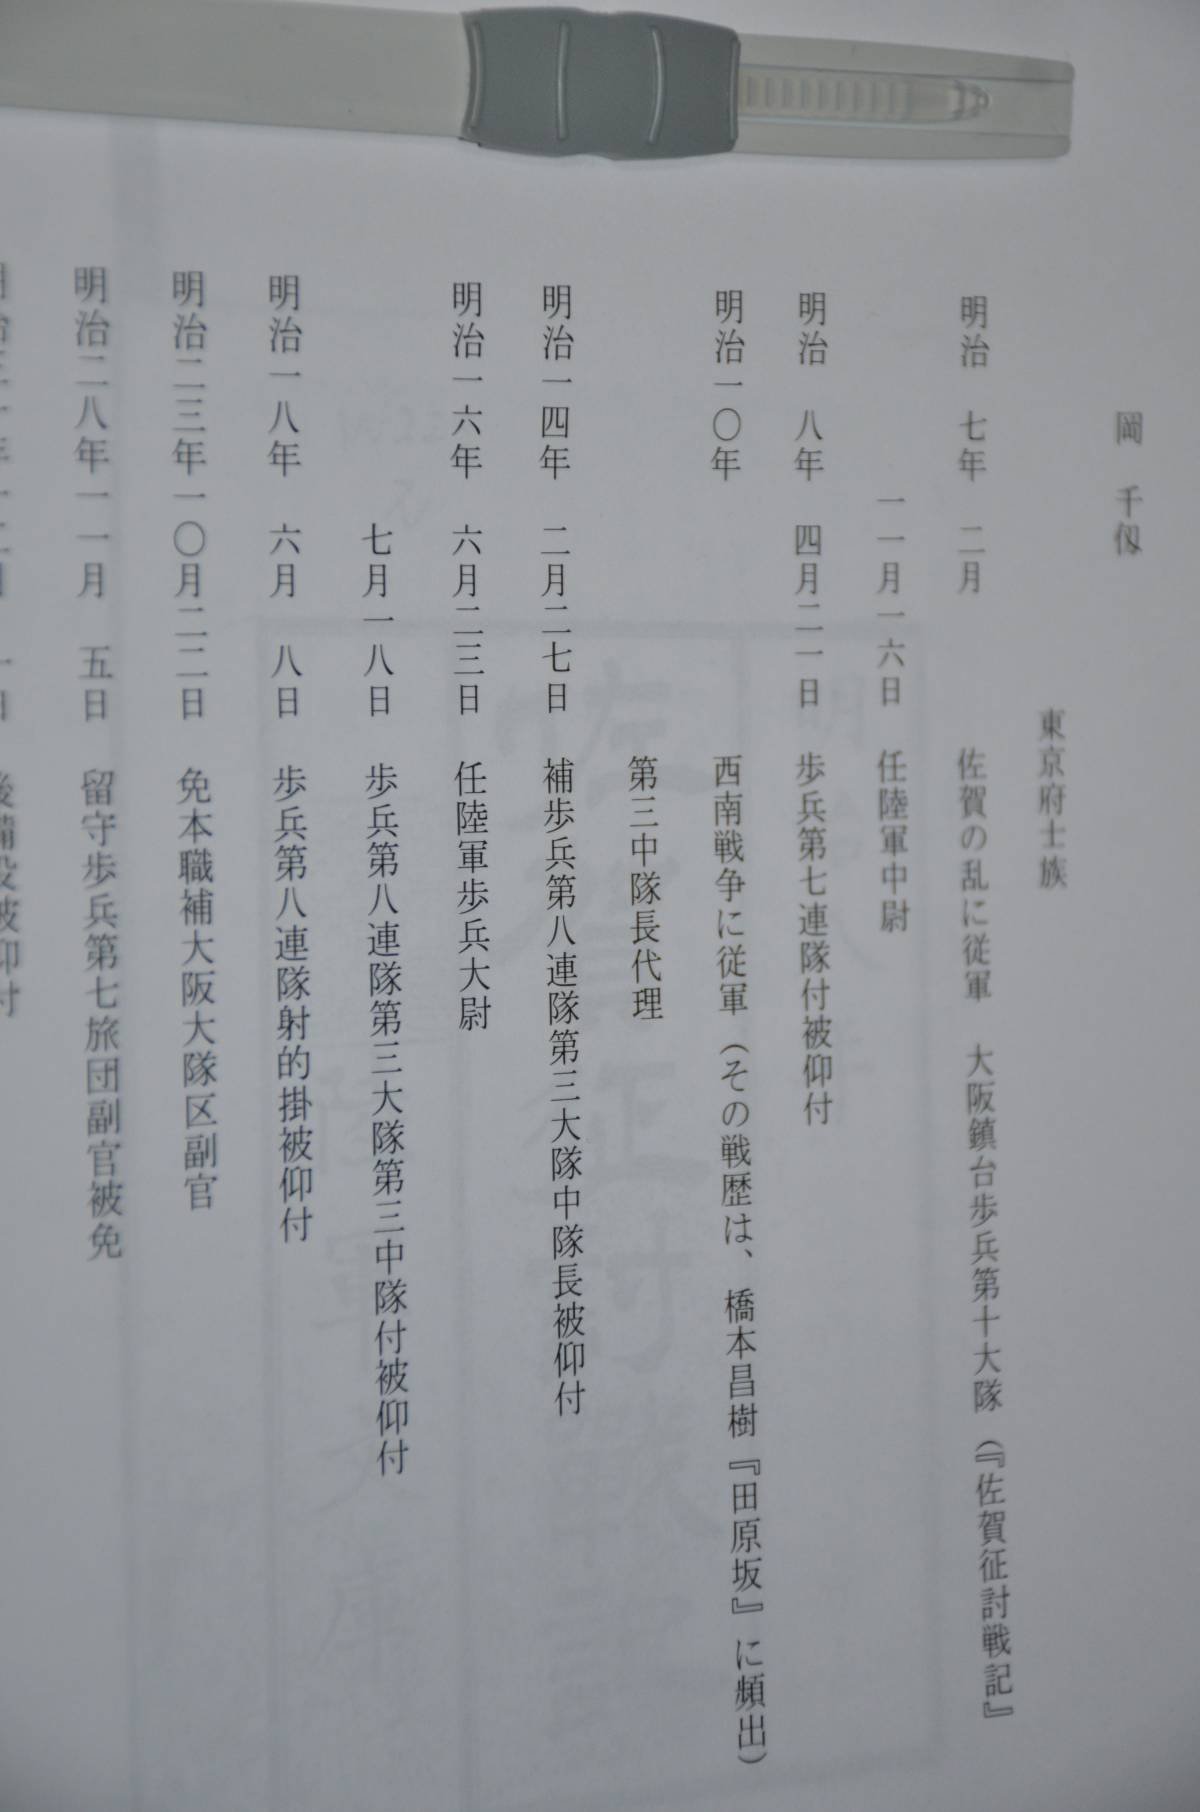 岡　千仭
東京府士族
明治　七年　二月　佐賀の乱に従軍　大阪鎮台歩兵第十大隊（『佐賀征討戦記』
一一月一六日　任陸軍中尉
明治　八年　四月二一日　歩兵第七連隊付被仰付
明治一〇年　西南戦争に従軍（その戦歴は、橋本昌樹『田原坂』に頻出）
第三中隊長代理
明治一四年　二月二七日　補歩兵第八連隊第三大隊中隊長被仰付
明治一六年　六月二三日　任陸軍歩兵大尉
七月一八日　歩兵第八連隊第三大隊第三中隊付被仰付
明治一八年　六月　八日　歩兵第八連隊射的掛被仰付
明治二三年一〇月二二日　免本職補大阪大隊区副官
明治二八年一一月　五日　留守歩兵第七旅団副官被免
後備役被仰付